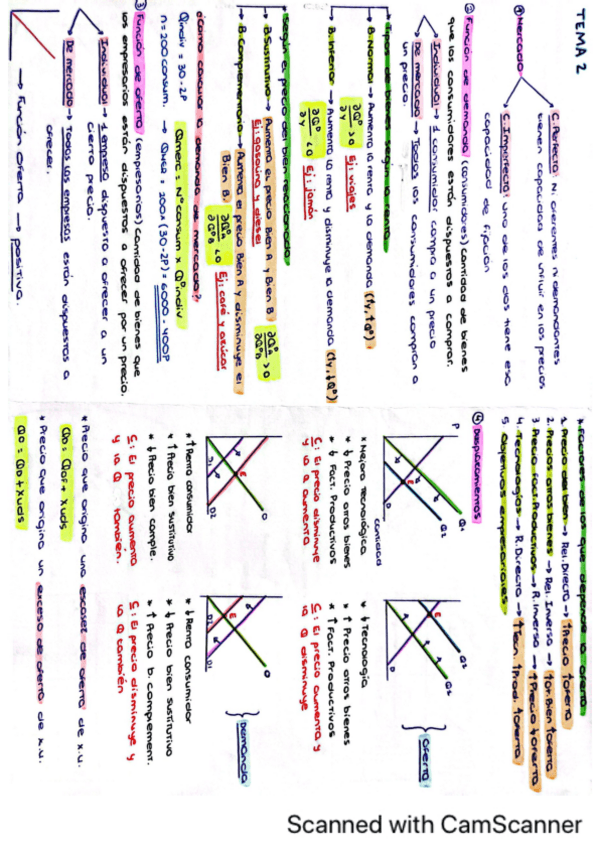 TEMA 2
① Mercado
C. Perfecta: Ni oferentes ni demandantes
tienen capacidad de influir en los precios
C. Imperfecta: uno de los dos tiene esa
capacidad de fijación
② Función de demanda (consumidores) cantidad de bienes
que los consumidores están dispuestos a comprar.
Individual → 1 consumidor compra a un precio
De mercado → Todos los consumidores compran a
un precio.
Tipos de bienes según la renta
B. Normal → Aumenta la renta y la demanda (↑y, ↑Qᴰ)
∂Qᴰ/∂y > 0 Ej: viajes
B. Inferior → Aumenta la renta y disminuye la demanda (↑y, ↓Qᴰ)
∂Qᴰ/∂y < 0 Ej: jamón
Según el precio del bien relacionado
B. Sustitutivo → Aumenta el precio Bien A y Bien B
Ej: gasolina y diesel
B. Complementario → Aumenta el precio Bien A y disminuye el
Bien B.
Ej: café y azúcar
¿Cómo calcular la demanda de mercado?
Qindiv = 30 - 2P
Qmerc = Nº consum x Qᴰ indiv
n = 200 consum. → QMER = 200 x (30 - 2P) = 6000 - 400P
③ Función de oferta (empresarios) cantidad de bienes que
los empresarios están dispuestos a ofrecer por un precio.
Individual → 1 empresa dispuesta a ofrecer a un
cierto precio.
De mercado → Todas las empresas están dispuestas a
ofrecer.
→ Función oferta → positiva.
* Factores de los que depende la oferta
1. Precio del bien → Rel. Directa → ↑Precio ↑oferta
2. Precios otros bienes → Rel. Inverso → ↑or. Bien ↑oferta
3. Precio fact. Productivos → R. Inverso → ↑Precio ↓oferta
4. Tecnologías → R. Directa → ↑Tecn. ↑Prod. ↑oferta
5. Objetivos empresariales
④ Desplazamientos
P
E
D
cantidad
* Mejora tecnológica
* ↓ Precio otros bienes
* ↓ Fact. Productivos
C: El precio disminuye
y la Q aumenta
E
D
* ↓ Tecnología
* ↑ Precio otros bienes
* ↑ Fact. Productivos
C: El precio aumenta y
la Q disminuye
OFERTA
E
O
D1
D2
* ↑ Renta consumidor
* ↑ Precio bien sustitutivo
* ↓ Precio bien comple.
C: El precio aumenta
y la Q también.
E
O
D2
D1
* ↓ Renta consumidor
* ↓ Precio bien sustitutivo
* ↑ Precio b. complement.
C: El precio disminuye y
la Q también
DEMANDA
* Precio que origina una escasez de oferta de x.u.
QD = QOF + Xuds
* Precio que origina un exceso de oferta de x.u.
QO = QD + Xuds
Scanned with CamScanner